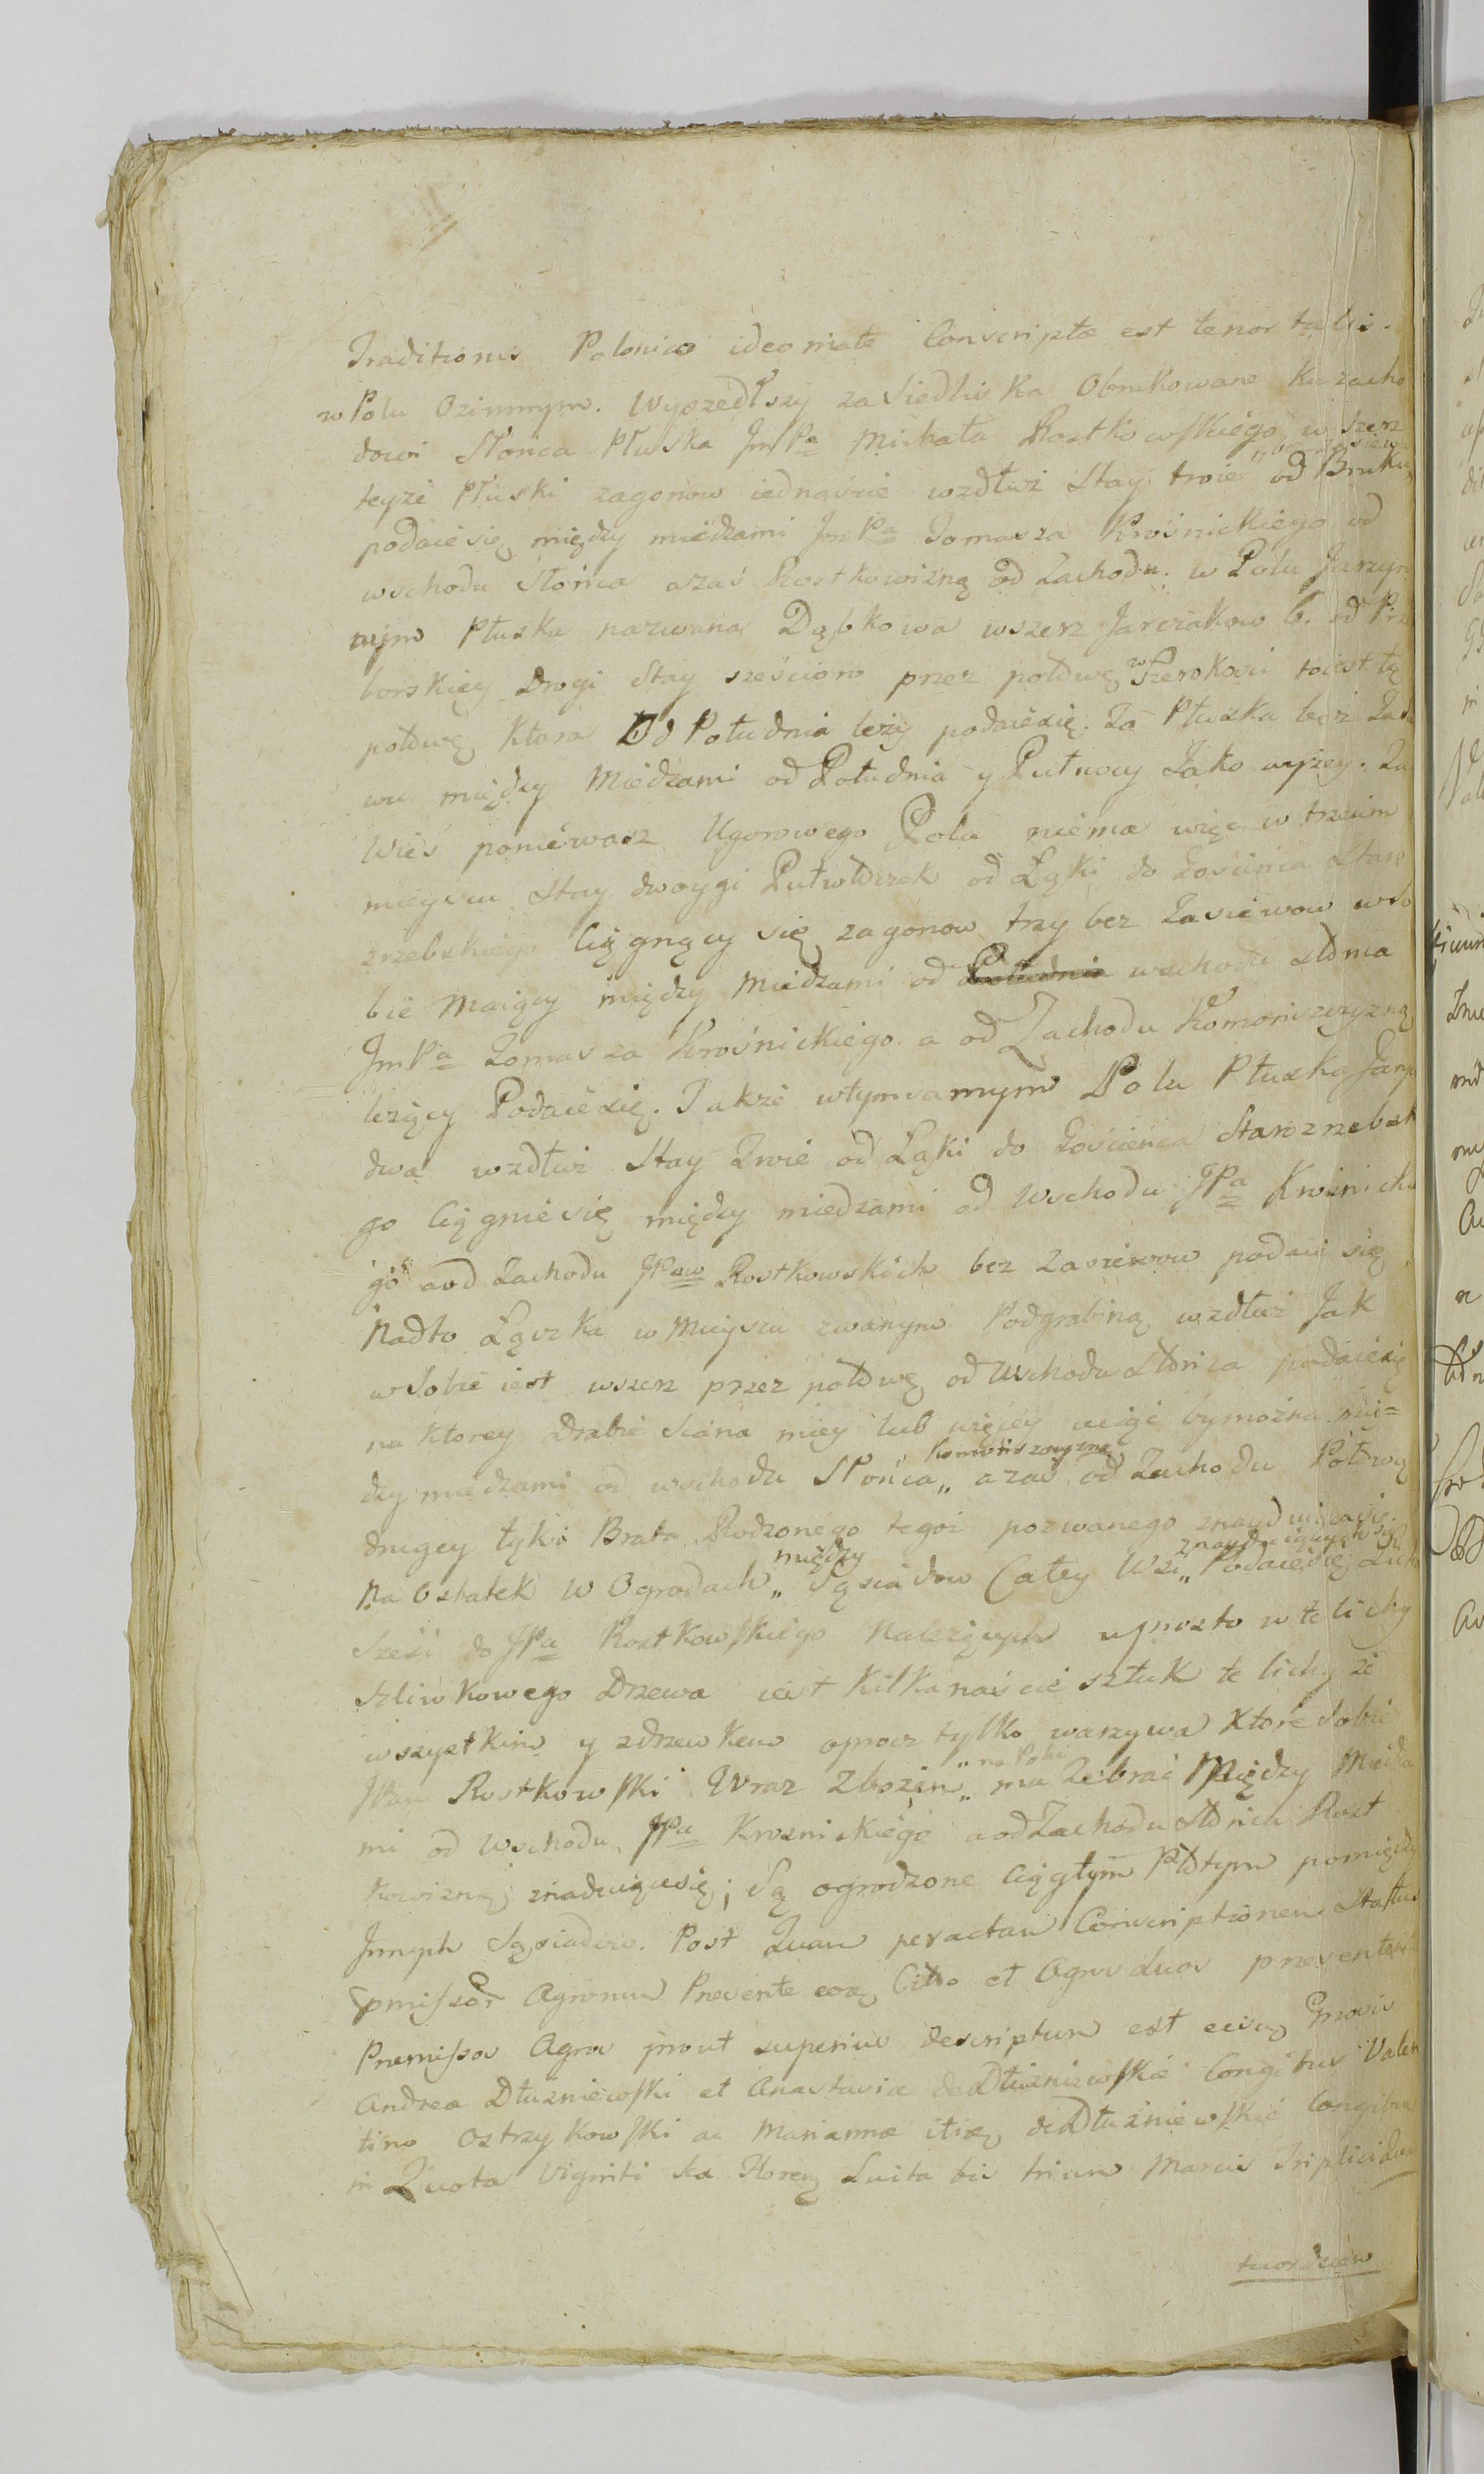 Traditionis Polonico ideomate Conscriptæ est tenor talis.
w Polu Ozimnym. Wyszedłszy za Siedliska Obrukowane ku zacho
dowi Słońca Płuska Jm Pa Michała Rostkowskiego w szerz
teyże Płuski zagonow iednaście wzdłuż Stay troie od Bruku
podaiesię między miedzami Jm Pa Tomasza Krośnickiego od
wschodu Słońca azaś Rostkowizną od Zachodu. w Polu Jarzyn
nym Płuska nazwana Dąbkowa wszerz Jarczakow 6. od Prz
borskiey Drogi Stay sześcioro przez połowę w Szerokości toiest tę
połowę ktora Od Południa leży podaiesię. Ta Płuska bez Zasie
wu między Miedzami od Południa y Pułnocy Jako wyżey. Za
Wieś poniewasz Ugorowego Pola niema więc w trzecim
mieyscu Stay dwoygi Pułwłoczek od Łąki do Gościńca Staro
zrzebskiego Ciągnący się zagonow trzy bez Zasiewow wso
bie Maiący między Miedzami od Południa wschodu Słońca
JmPa Tomasza Krośnickiego a od Zachodu Komoniczyzną
leżący Podaiesię. Także wtymsamym Polu Płuska Jarcz
dwa wzdłuż Stay Troie od Łąki do Gościeńca Starozrzebsk
go Ciągniesię między miedzami od Wschodu JPa Krośnicki
go aod Zachodu JPow Rostkowskich bez Zasiewow podaie się
Nadto Łączka w Mieyscu zwanym Podgrabiną wzdłuż Jak
w Sobie iest wszerz przez połowę od Wschodu Słońca podaiesię
na ktorey Drabie Siana miey lub więcey uciąć bymożna mię=
dzy miedzami od wschodu Słońca „ Komoniczyzną azaś od Zachodu Połowę
drugey tyki Brata Rodzonego tegoż pozwanego znayduiącasię.
Na Ostatek w Ogrodach „ między Sąsiadow Całey Wsi „ znayduiących się Podaiesię Lich
Sześć do JPa Rostkowskiego Należących uprosto w te lichy
Szliwkowego Drzewa iest Kilkanaście sztuk te lichy ze
wszystkim y zdrzewkem oprocz tylko warzywa ktore Sobie
JPan Rostkowski Wraz Zbożem „ na Polu ma Zebrać Między Miedza
mi od Wschodu JPa Krosnickiego aod Zachodu Słońca Rost
kowizną znaduiącesię; Są ogrodzone Ciągłym Płotym pomiędzy
Jnnych Sąsiadow. Post Quam peractam Conscriptionem Status
Agrorum Presente Citto et Agros Suos presentante
Premissos Agros prout superius descriptum est
Andreæ Dłuzniewski et Anastasiæ de Dłuzniewskie Congibus Valen
tino Ostrzykowski ac Mariannæ itiæ de Dłuźniewskie Congibus
in Quota Viginti Sex Floren Luita bis trium Marcis Triplici
twordzien